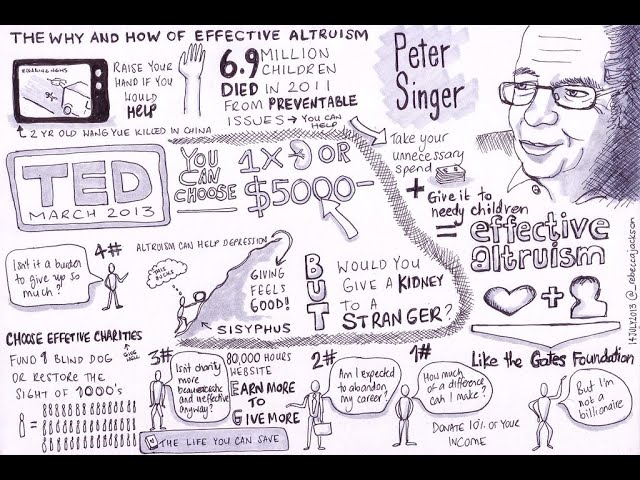 THE WHY AND HOW OF EFFECTIVE ALTRUISM
BREAKING NEWS
RAISE YOUR
HAND IF YOU
WOULD
HELP
2 YR OLD WANG YUE KILLED IN CHINA
6.9 MILLION
CHILDREN
DIED IN 2011
FROM PREVENTABLE
ISSUES → YOU CAN
HELP
Peter
Singer
Take your
unnecessary
spend
+ Give it to
needy children
= effective
altruism
+
Like the Gates Foundation
But I'm
not a
billionaire
TED
MARCH 2013
YOU
CAN
CHOOSE
1X OR
$5000-
4#
Isn't it a burden
to give up so
much?
ALTRUISM CAN HELP DEPRESSION
THIS
ROCKS
GIVING
FEELS
GOOD!
SISYPHUS
BUT
WOULD YOU
GIVE A KIDNEY
TO A
STRANGER?
CHOOSE EFFETIVE CHARITIES
FUND 1 BLIND DOG
OR RESTORE THE
SIGHT OF 1000's
=
3#
Isnt charity
more
and ineffective
anyway?
80,000 HOURS
WEBSITE
EARN MORE
TO
GIVE MORE
THE LIFE YOU CAN SAVE
2#
Am I expected
to abandon
my career?
1#
How much
of a difference
can I make?
DONATE 10% OF YOUR
INCOME
14JULY2013 @_rebeccajackson